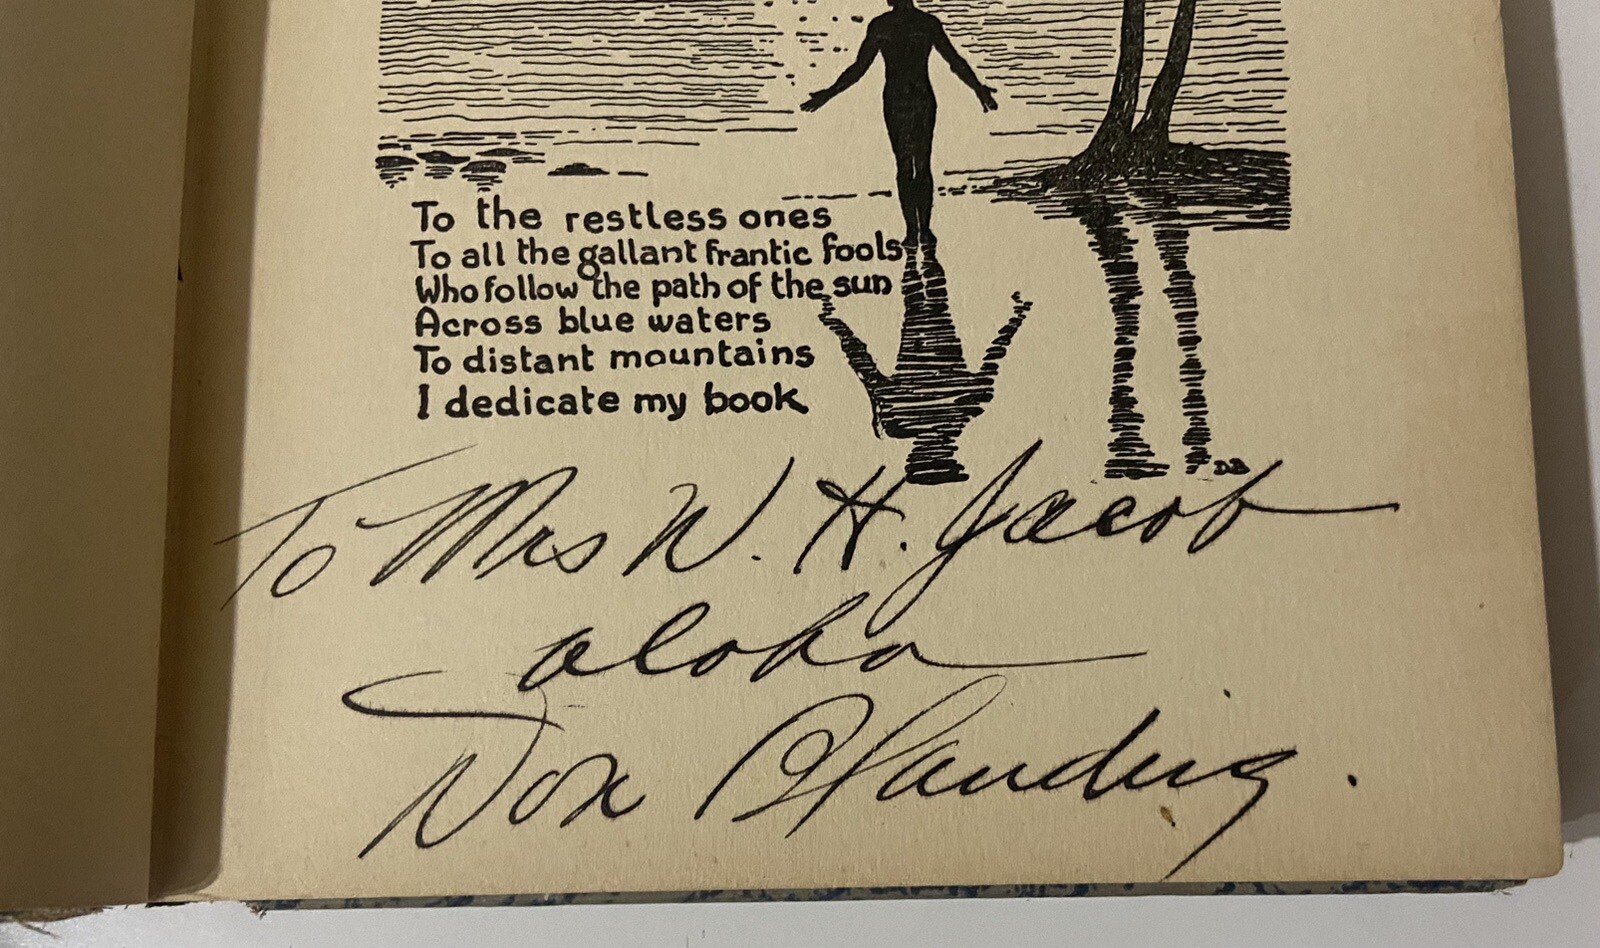 To the restless ones
To all the gallant frantic fools
Who follow the path of the sun
Across blue waters
To distant mountains
I dedicate my book
DB
To Mrs W. H. Jacob
aloha
Don Blanding.